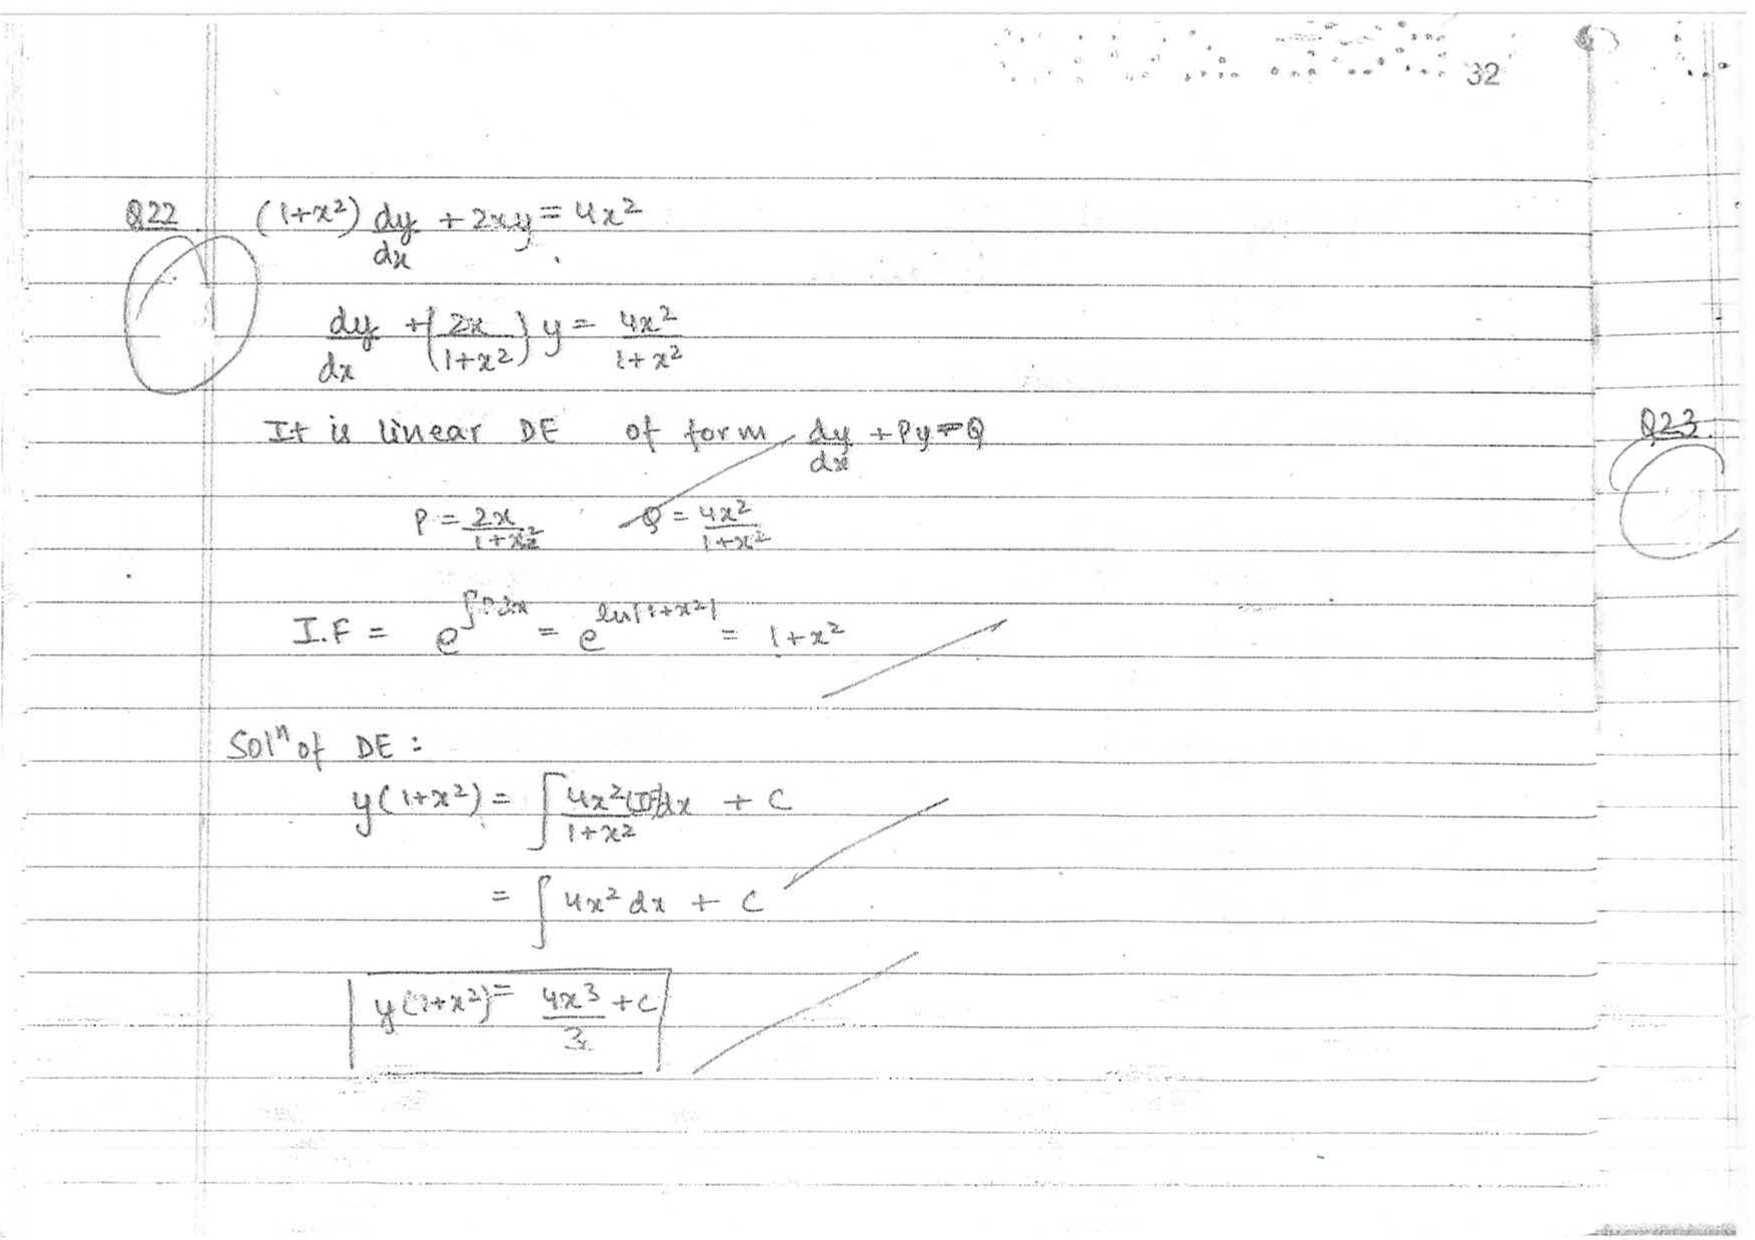 32
Q22 (1+x²) dy/dx + 2xy = 4x²
dy/dx + (2x/1+x²) y = 4x²/1+x²
It is linear DE of form dy/dx + Py = Q
P = 2x/1+x² Q = 4x²/1+x²
I.F = e^∫P dx = e^ln|1+x²| = 1+x²
Solⁿ of DE :
y(1+x²) = ∫ 4x²/1+x² (IF)dx + C
= ∫ 4x² dx + C
y(1+x²) = 4x³/3 + C
Q23.